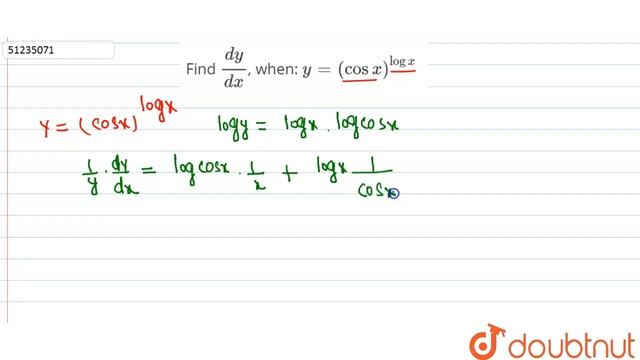 51235071
Find dy/dx, when: y = (cos x)^{log x}
y = (cosx)^{logx}
logy = logx . logcosx
1/y . dy/dx = logcosx . 1/x + logx 1/cosx
doubtnut